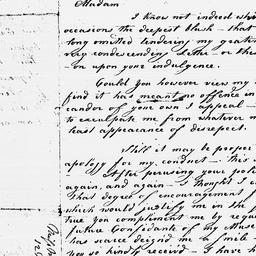 Madam
I know not indeed whi
occasions the deepest blush – that
long omitted tendering my gratef
very condescending Letter or this
on upon your indulgence.
Could you however view my
find it has meant no offence in
candor of your own I appeal –
to exculpate me from whatever m
least appearance of disrespect.
Still it may be proper
apology for my conduct – this
After perusing your polit
again, and again – Thought I c
that degree of encouragement
which would justify me in the
true you complement me by reque
future Confidante of my Muse
has scarce deign'd me a smile
you so kindly receiv'd – I have h